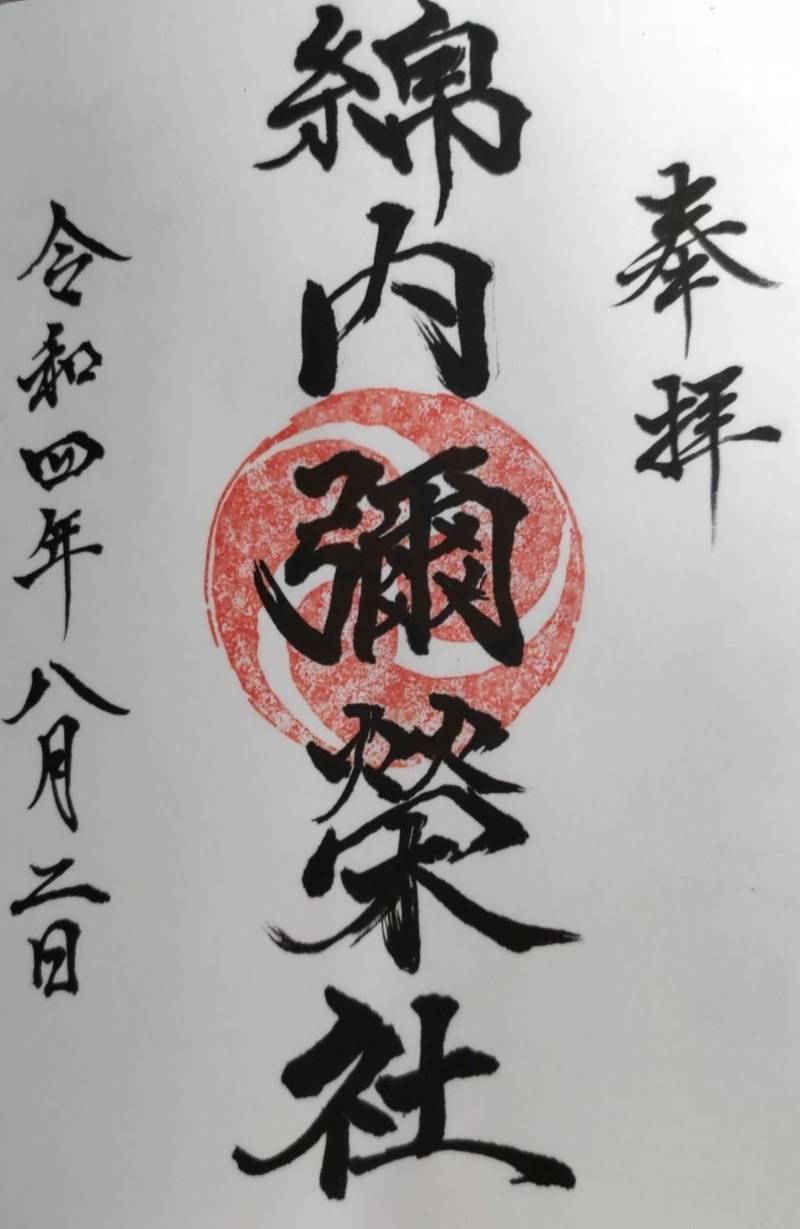 奉拝
綿内彌榮社
令和四年八月二日